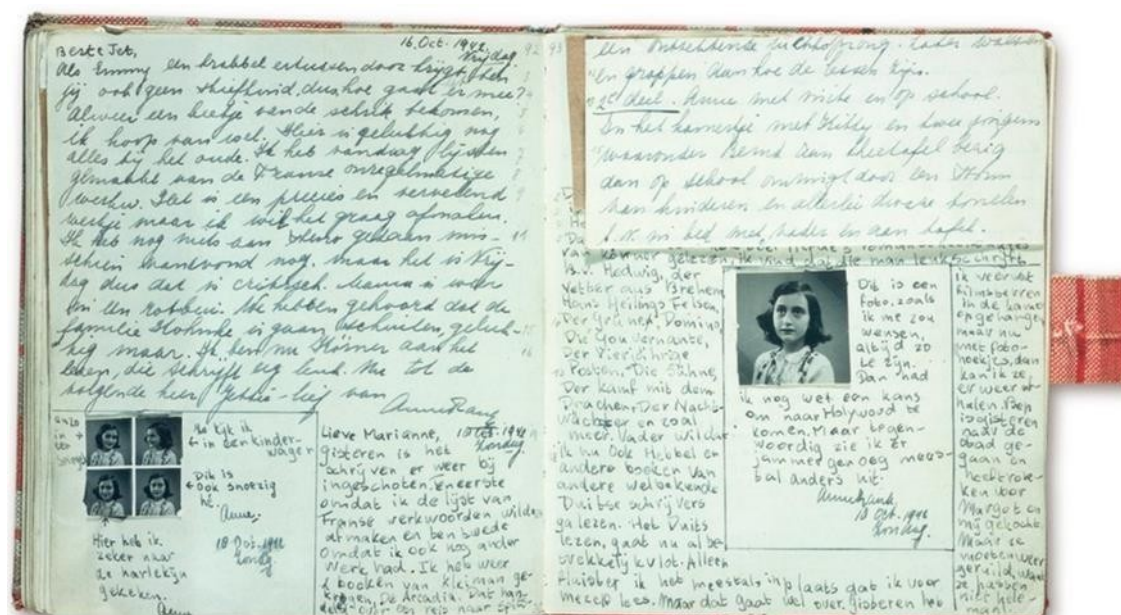 Beste Jet, 16 Oct. 1942
Vrijdag
Als Emmy een krabbel ertussendoor krijgt, ben
jij ook geen stiefkind, dus hoe gaat er mee?
Alweer een beetje van de schrik bekomen,
ik hoop van wel. Hier is gelukkig nog
alles bij het oude. Ik heb vandaag lijsten
gemaakt van de Franse onregelmatige
werkw. Dat is een precies en vervelend
werkje maar ik wil het graag afmaken.
Ik heb nog niets aan steno gedaan mis-
schien vanavond nog, maar het is Vrij-
dag dus dat is critisch. Mama is weer
in een We hebben gehoord dat de
familie is gaan schuilen, geluk-
kig maar. Ik ben nu Körner aan het
lezen, die schrijft erg leuk. Nu tot de
volgende keer Jettie-lief van
Anne Frank
Zo kijk ik
in een kinder-
wagen
Dit is
ook snoezig
hè.
Anne.
18 Oct. 1942
Zondag
Hier heb ik
zeker naar
de harlekijn
gekeken.
Anne
Lieve Marianne, Zondag
gisteren is het
schrijven er weer bij
ingeschoten, eneerste
omdat ik de lijst van
Franse werkwoorden wilde
afmaken en ten twede
omdat ik ook nog ander
werk had. Ik heb weer
2 boeken van Kleiman ge-
kregen, De Arcadia. Dat han-
delt over een reis naar Spitz-
92 93
een ontzettende luchtsprong. Vader
en grappen aan hoe de lessen zijn.
2e deel. Anne met miste en op school.
In het kamertje met Kitty en twee jongens
waaronder Bernd aan theetafel bezig
dan op school omringt door een
van kinderen en allerlei dwaze
b.v. in bed met vader en aan tafel.
van Körner gelezen, ik vind dat die man leuk schrijft
B.v. Hedwig, der
Vetter aus Bremen
Hans Heilings Felsen,
Der Grüne Domino,
Die Gouvernante,
Der Vierjährige
Posten, Die Sühne,
Der Kampf mit dem
Drachen, Der Nacht-
wächter en zoal
meer. Vader wil dat
ik nu ook Hebbel en
andere boeken van
andere welbekende
Duitse schrijvers
ga lezen. Het Duits
lezen, gaat nu al be-
trekkelijk vlot. Alleen
fluister ik het meestal, in plaats dat ik voor
mezelf lees. Maar dat gaat wel over. gisteren heb
Dit is een
foto, zoals
ik me zou
wensen,
altijd zo
te zijn.
Dan had
ik nog wel een kans
om naar Holywood te
komen. Maar tegen-
woordig zie ik er
jammer genoeg mees-
tal anders uit.
Anne Frank
18 Oct. 1942
Zondag
Ik veer wat
filmsterren
in de kamer
opgehangen
maar nu
met foto-
hoekjes, dan
kan ik ze,
er weer uit-
halen. Bep
is gisteren
naar de
stad ge-
gaan en
heeft rok-
ken voor
Margot en
mij gekocht
Maar ze
moeten weer
geruild, want
ze passen
niet hele-